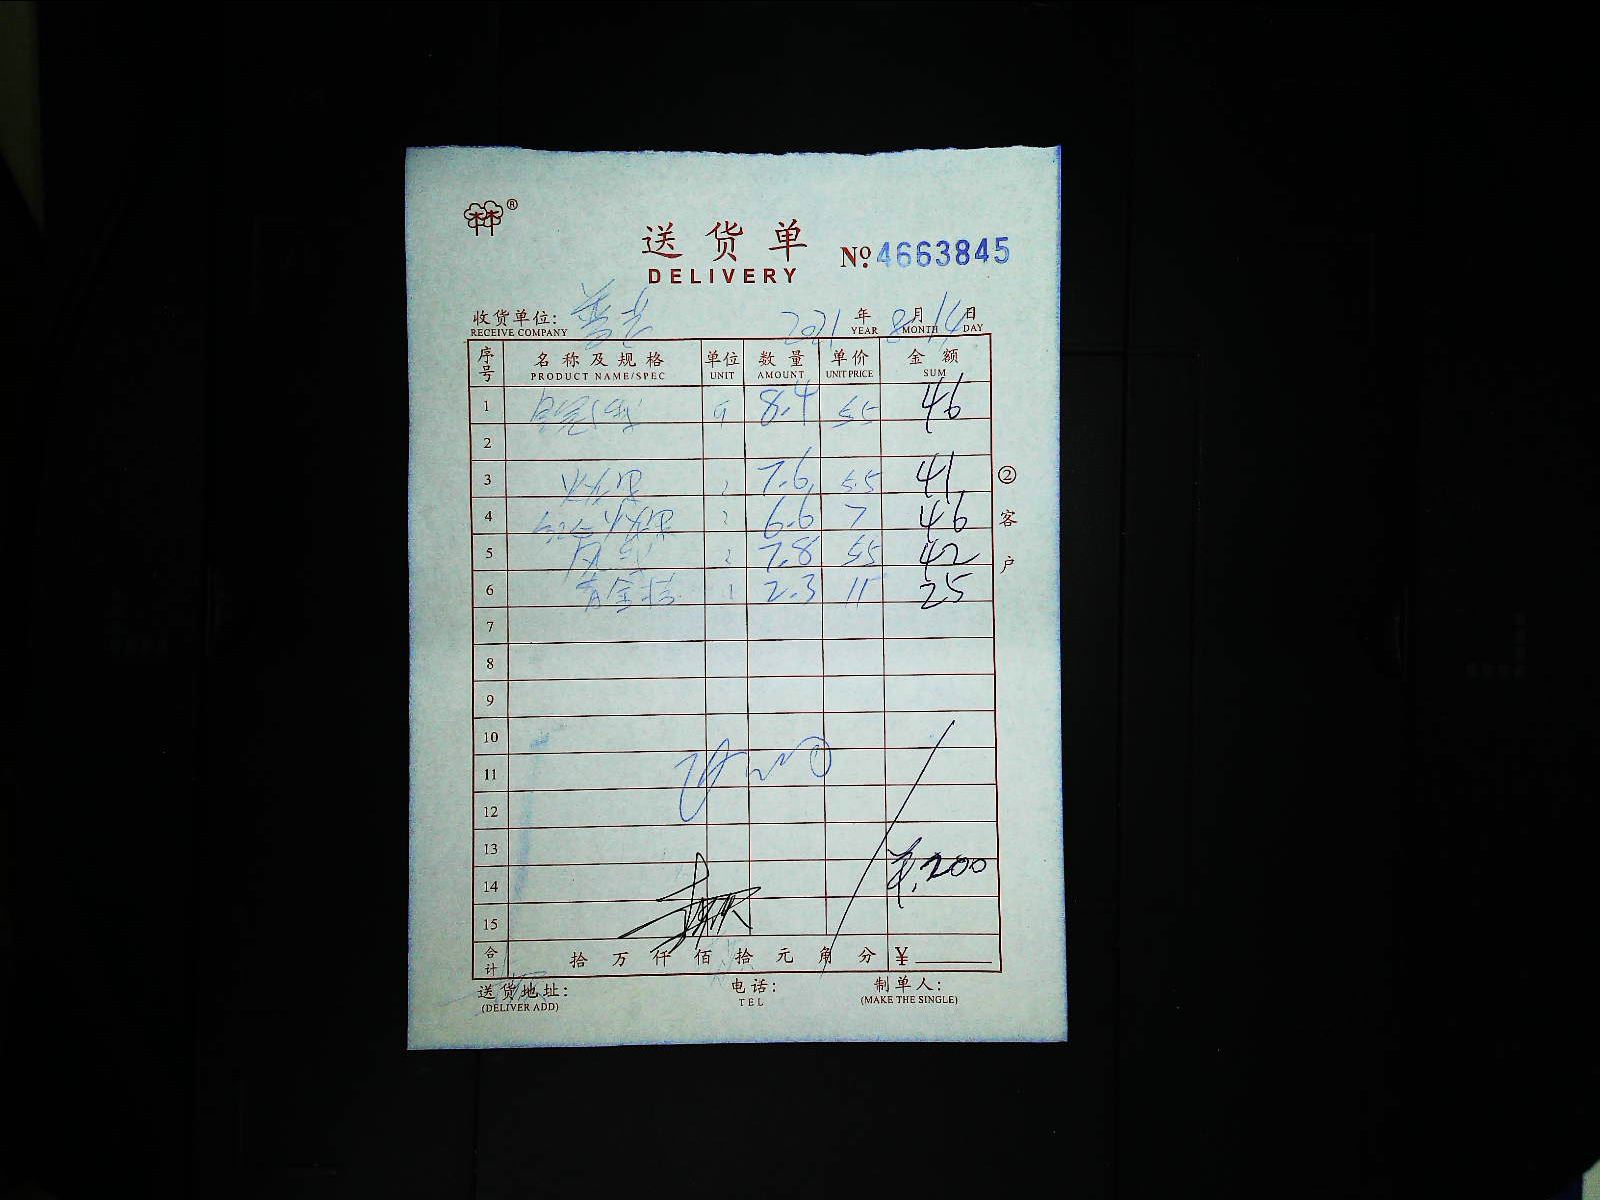 林®
送货单
DELIVERY
No. 4663845
收货单位: 2021 年 8 月 14 日
RECEIVE COMPANY YEAR MONTH DAY
序号 名称及规格 单位 数量 单价 金额
PRODUCT NAME/SPEC UNIT AMOUNT UNIT PRICE SUM
1 8.4 5.5 46
2
3 7.6 5.5 41
4 6.6 7 46
5 7.8 5.5 42
6 2.3 11 25
7
8
9
10
11
12
13
¥200
14
15
合计 拾 万 仟 佰 拾 元 角 分 ¥
送货地址: 电话: 制单人:
(DELIVER ADD) TEL (MAKE THE SINGLE)
②客户